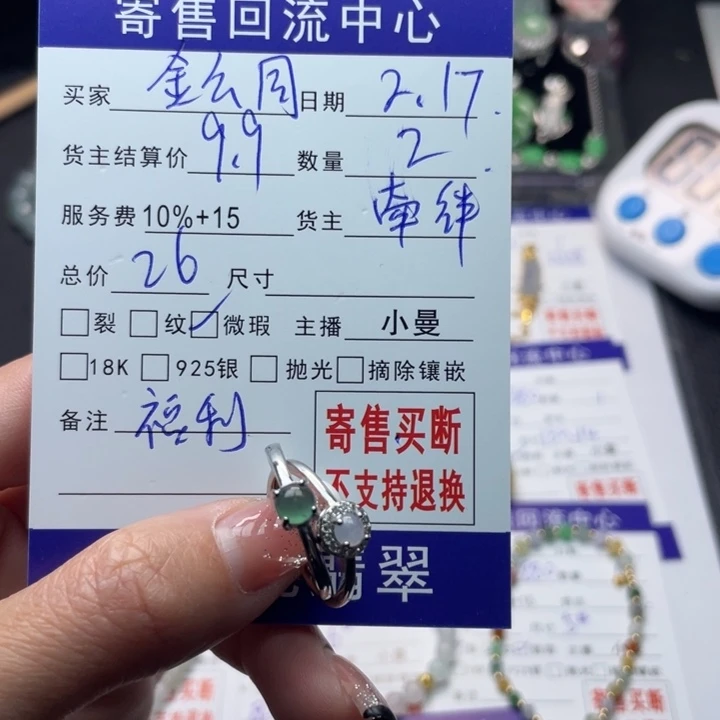 寄售回流中心
买家 金公同 日期 2.17.
货主结算价 9.9 数量 2
服务费 10%+15 货主 牵绊
总价 26 尺寸
裂 纹 微瑕 主播 小曼
18K 925银 抛光 摘除镶嵌
备注 福利
寄售买断
不支持退换
翡翠